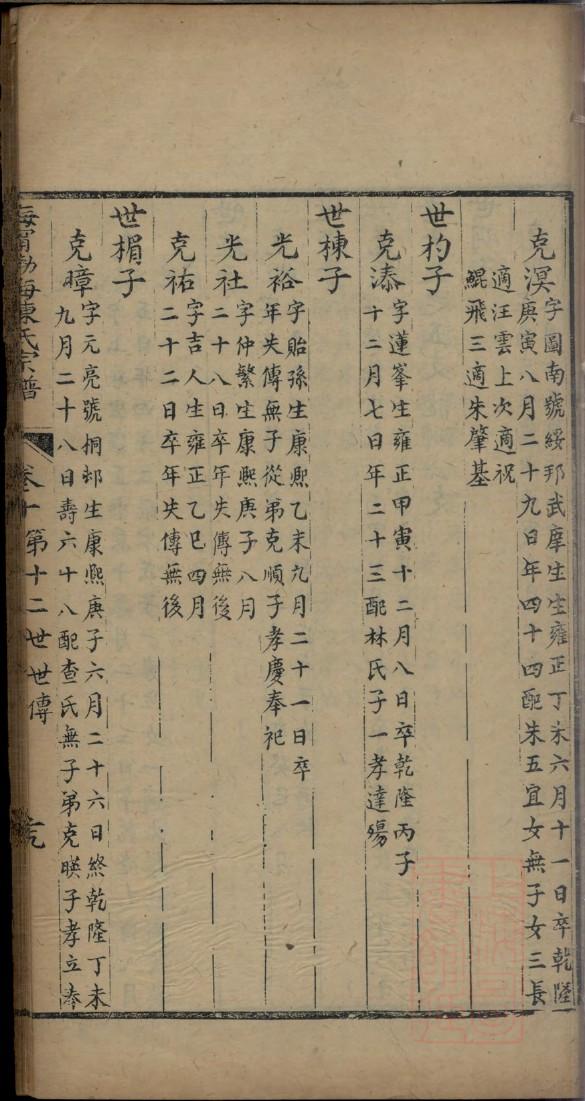 克溟字圖南號綏邦武庠生生雍正丁未六月十一日卒乾隆
庚寅八月二十九日年四十四配朱五宜女無子女三長
適汪雲上次適祝
鯤飛三適朱肇基
世杓子
克漆字蓮峯生雍正甲寅十二月八日卒乾隆丙子
十二月七日年二十三配林氏子一孝達殤
世棟子
光裕字貽孫生康熙乙未九月二十一日卒
年失傳無子從弟克順子孝慶奉祀
光社字仲繁生康熙庚子八月
二十八日卒年失傳無後
克祐字吉人生雍正乙巳四月
二十二日卒年失傳無後
世楣子
克暲字元亮號桐邨生康熙庚子六月二十六日終乾隆丁未
九月二十八日壽六十八配查氏無子弟克暎子孝立奉
海甯渤海陳氏宗譜 卷十 第十二世世傳